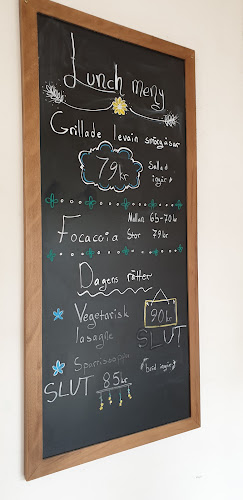 Lunch meny
Grillade levain smörgåsar
79 kr
Sallad
ingår
Mellan 65-70 kr
Focaccia Stor 79 kr
Dagens rätter
Vegetarisk
lasagne
90 kr
SLUT
Sparrissoppa
SLUT 85 kr
bröd ingår